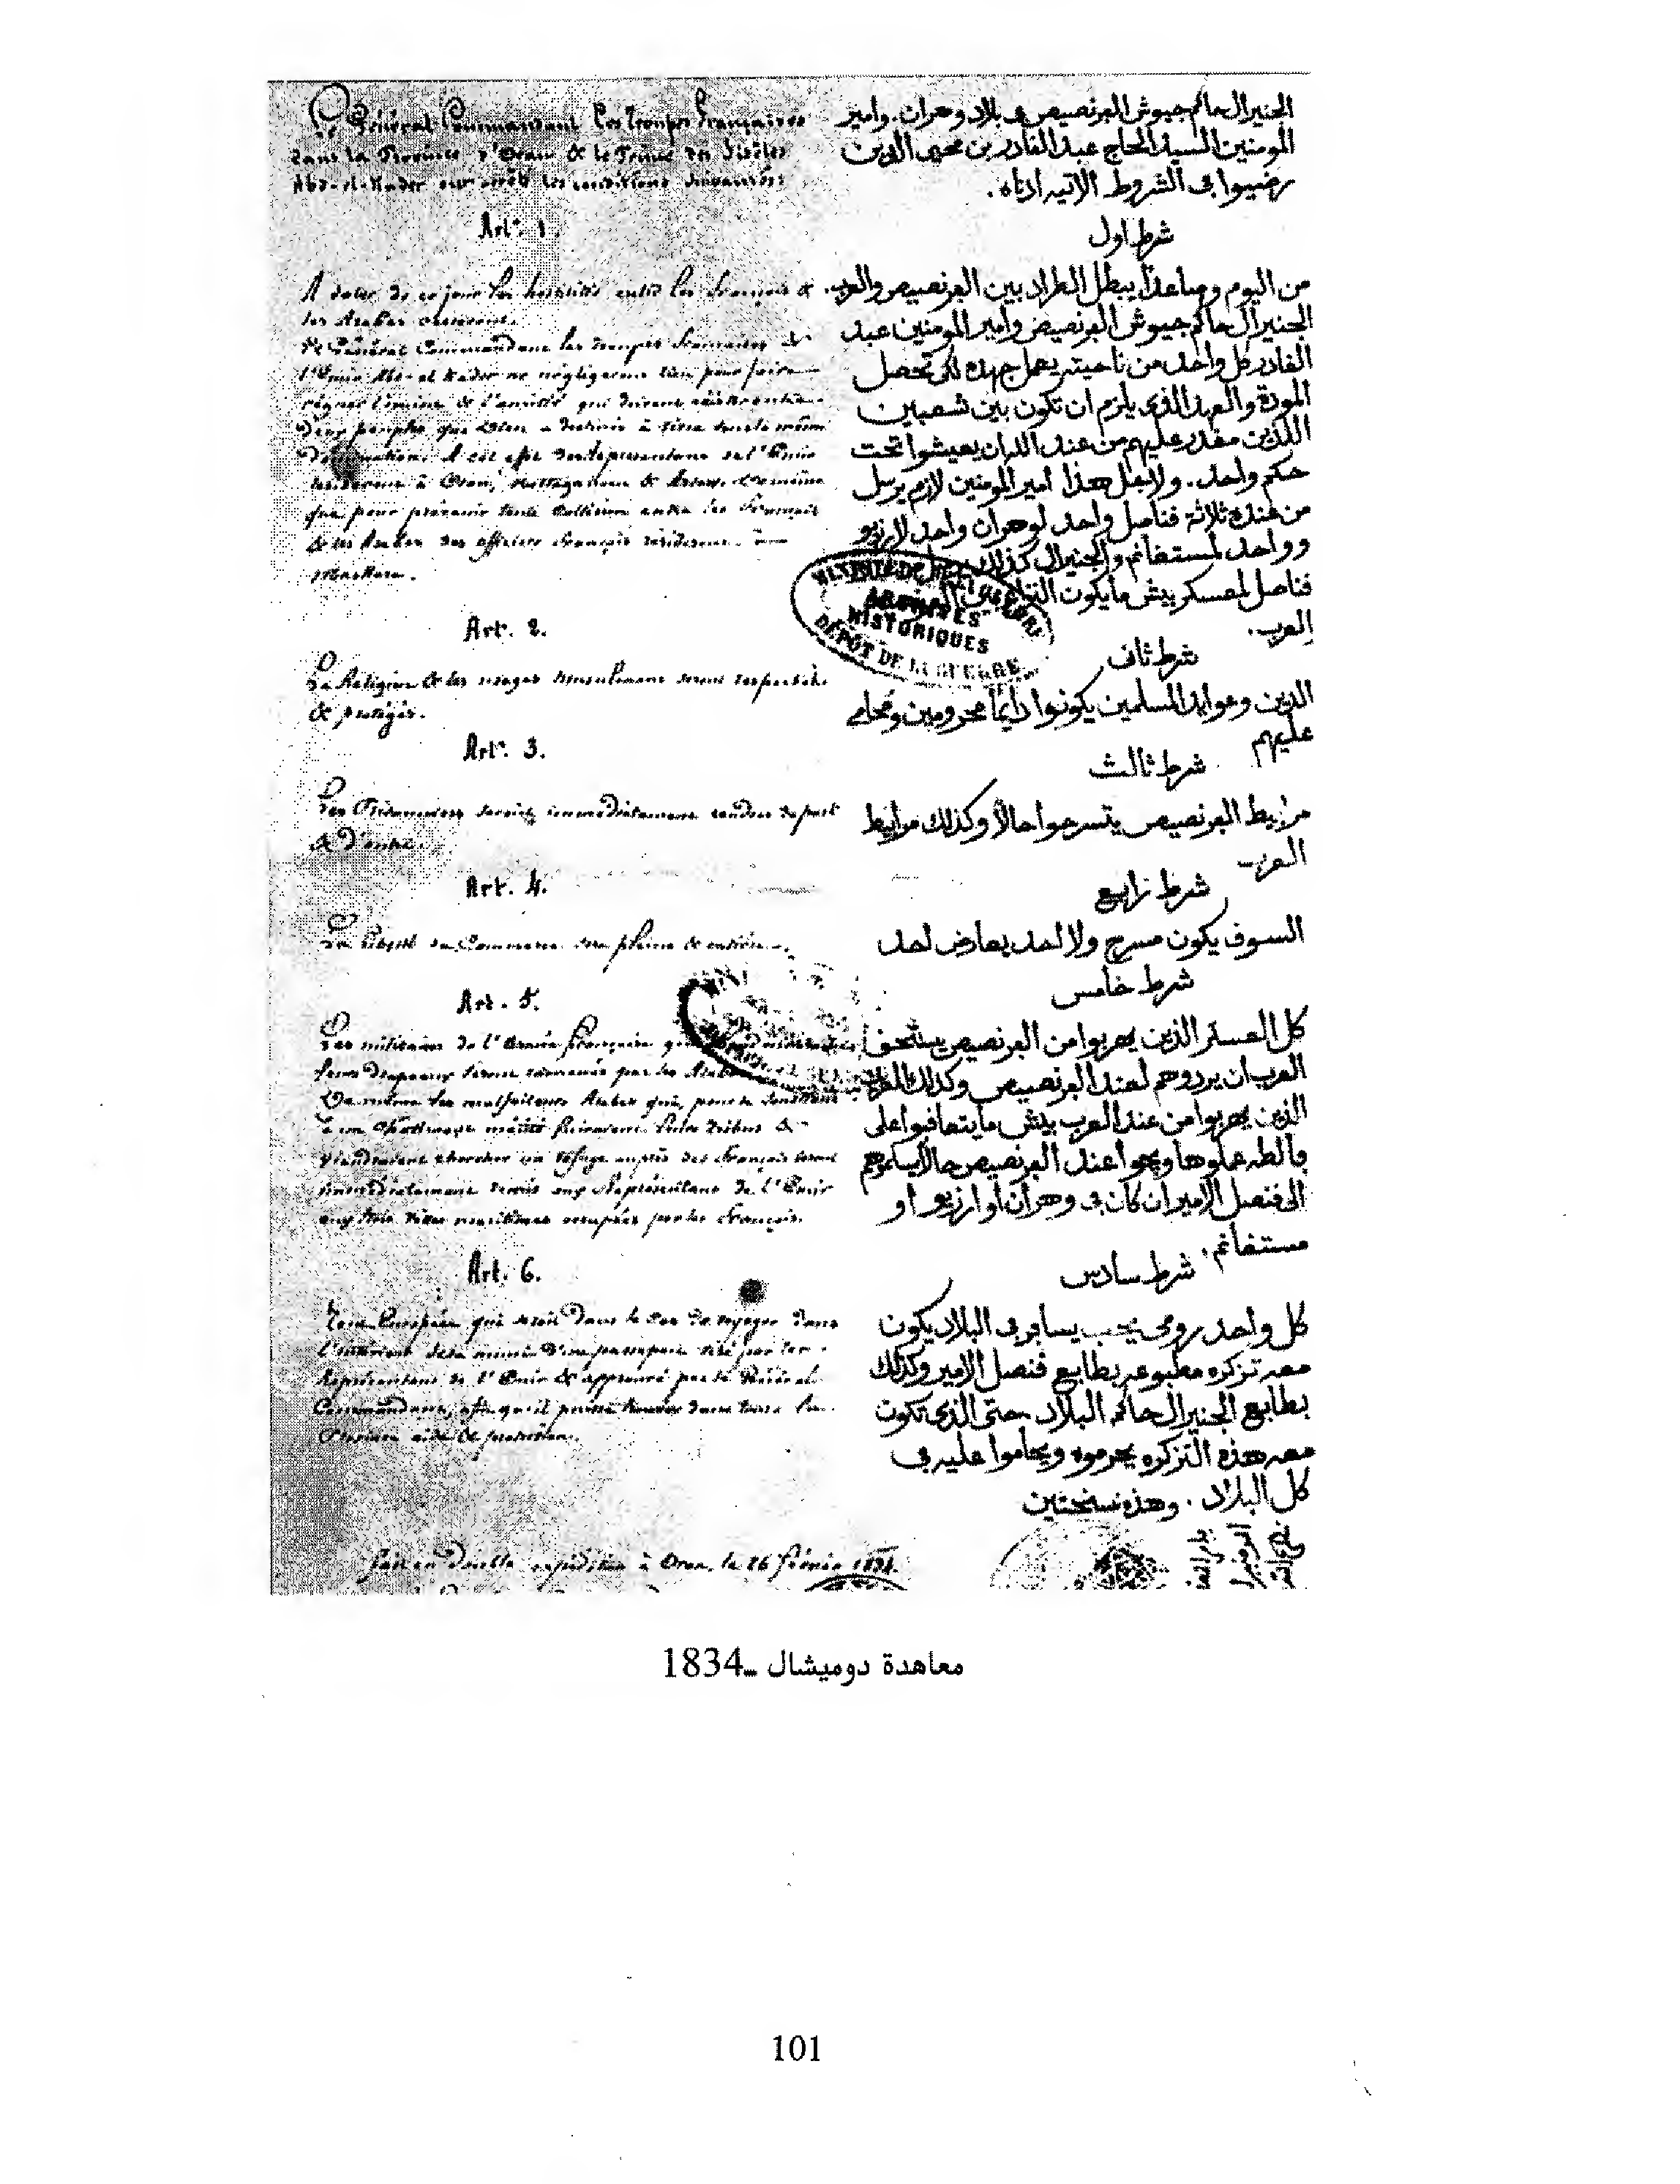 Le Général Commandant les troupes françaises
dans la Province d'Oran & le Prince des fidèles
Abd-el-Kader ont arrêté les conditions suivantes:
Art. 1.
A dater de ce jour les hostilités entre les français &
les Arabes cesseront.
Le Général Commandant les troupes françaises &
l'Emir Abd-el-Kader ne négligeront rien pour faire
régner l'union & l'amitié qui doivent exister entre
deux peuples que Dieu a destinés à vivre sous la même
domination. A cet effet des représentans de l'Emir
résideront à Oran, Mostaganem & Arzew. De même
que pour prévenir toute collision entre les français
& les Arabes des officiers français résideront à
Maskara.
Art. 2.
La Religion & les usages Musulmans seront respectés
& protégés.
Art. 3.
Les Prisonniers seront immédiatement rendus de part
& d'autre.
Art. 4.
La liberté du Commerce sera pleine & entière.
Art. 5.
Les militaires de l'Armée française qui
leurs drapeaux seront ramenés par les Arabes
De même les malfaiteurs Arabes qui, pour se soustraire
à un châtiment mérité fuiraient leurs tribus &
viendraient chercher un refuge auprès des français seront
immédiatement remis aux Représentans de l'Emir
aux trois villes maritimes occupées par les français.
Art. 6.
Tout Européen qui serait dans le cas de voyager dans
l'intérieur sera muni d'un passeport visé par les
Représentans de l'Emir & approuvé par le Général
Commandant, afin qu'il puisse trouver dans toute la
Province aide & protection.
Fait en double expédition à Oran, le 26 février 1834.
الجنيرال حاكم جيوش الفرنصيص في بلاد وهران. وامير
المومنين السيد الحاج عبد القادر بن محيي الدين
رضيوا في الشروط الاتيه ادناه.
شرط اول
من اليوم وصاعدا يبطل الطراد بين الفرنصيص والعرب.
الجنيرال حاكم جيوش الفرنصيص وامير المومنين عبد
القادر كل واحد من ناحيته يعمل جهده لكي تحصل
المودة والعهد الذي يلزم ان تكون بين شعبين
اللذين مقدر عليهم من عند الله ان يعيشوا تحت
حكم واحد. ولاجل هذا امير المومنين لازم يرسل
من عنده ثلاثة قناصل واحد لوهران واحد لارزيو
وواحد لمستغانم والجنيرال كذلك
قناصل لمعسكر بيش ما يكون
العرب.
شرط ثاني
الدين وعوايد المسلمين يكونوا دايما محرومين ومحامي
عليهم
شرط ثالث
مرابيط الفرنصيص يتسرحوا حالا وكذلك مرابيط
العرب
شرط رابع
السوق يكون مسرح ولا احد يعارض احد
شرط خامس
كل العسكر الذين يهربوا من الفرنصيص يستحق
العرب ان يردوهم لعند الفرنصيص وكذلك العرب
الذين يهربوا من عند العرب بيش ما يتعاقبوا على
غالطه عملوها ويجوا عند الفرنصيص حالا يسلموهم
الى قنصل الامير ان كان في وهران او ارزيو او
مستغانم.
شرط سادس
كل واحد رومي يحب يسافر في البلاد يكون
معه تزكره مطبوعه بطابع قنصل الامير وكذلك
بطابع الجنيرال حاكم البلاد. حتى الذي تكون
معه هذه التزكره يحرموه ويحاموا عليه في
كل البلاد. وهذه نسختين
ARCHIVES
HISTORIQUES
DÉPOT DE LA GUERRE
معاهدة دوميشال -1834
101